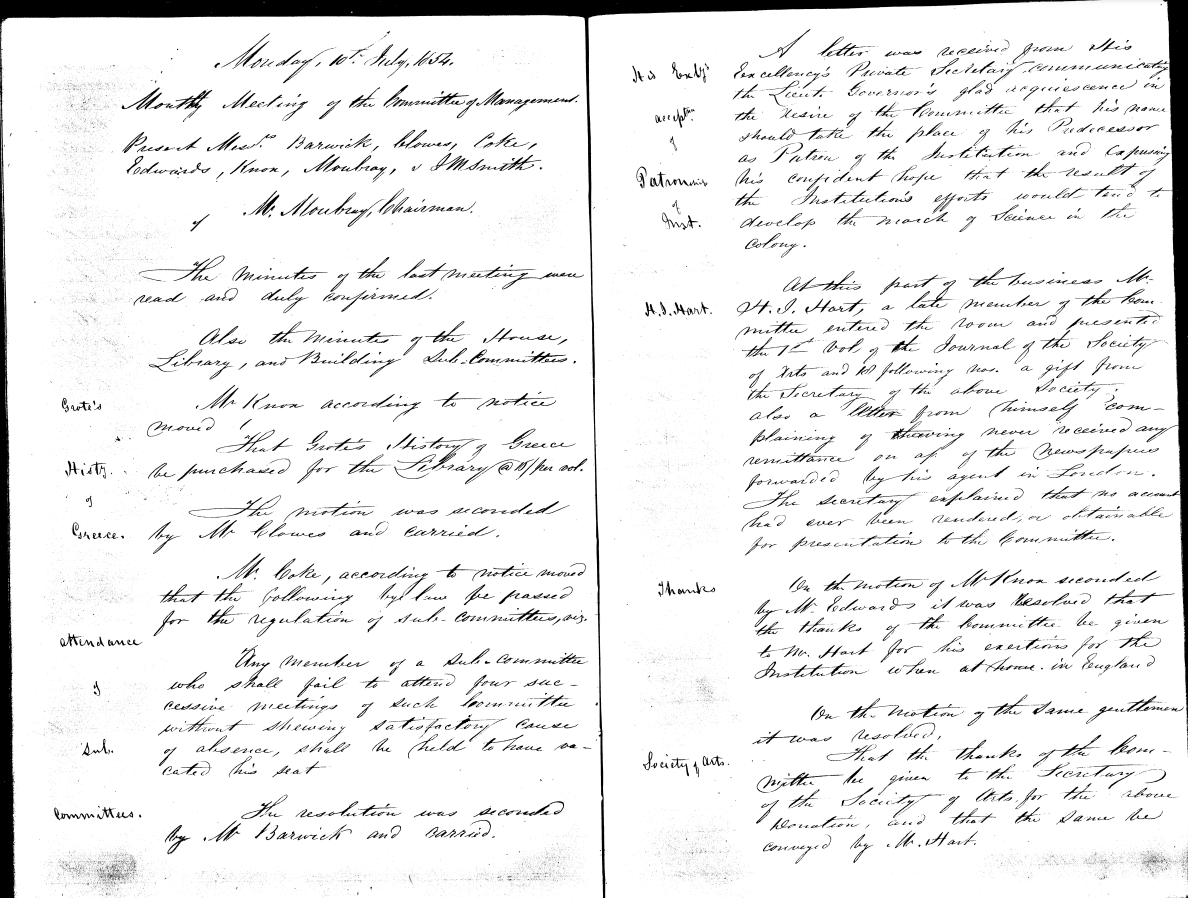 Monday, 10th July, 1854.
Monthly Meeting of the Committee of Management.
Present Messrs Barwick, Clowes, Coke,
Edwards, Knox, Moubray, & J M Smith.
Mr. Moubray, Chairman.
The minutes of the last meeting were
read and duly confirmed.
Also the Minutes of the House,
Library, and Building Sub-Committees.
Grote's
Histy.
of
Greece.
Mr Knox according to notice
moved
That Grote's History of Greece
be purchased for the Library @ per vol.
The motion was seconded
by Mr Clowes and carried.
attendance
of
Sub.
Committees.
Mr. Coke, according to notice moved
that the following by law be passed
for the regulation of sub-committees, viz.
Any member of a sub-committee
who shall fail to attend four suc-
cessive meetings of such Committee
without shewing satisfactory cause
of absence, shall be held to have va-
cated his seat
The resolution was seconded
by Mr Barwick and carried.
His Excly's
acceptn.
of
Patronship
of
Inst.
A letter was received from His
Excellency's Private Secretary communicating
the Lieut. Governor's glad acquiescence in
the desire of the Committee that his name
should take the place of his Predecessor
as Patron of the Institution and expressing
his confident hope that the result of
the Institution's efforts would tend to
develop the march of Science in the
Colony.
H. J. Hart.
At this part of the business Mr.
H. J. Hart, a late member of the Com-
mittee entered the room and presented
the 1st Vol. of the Journal of the Society
of Arts and following nos. a gift from
the Secretary of the above Society;
also a letter from himself com-
plaining of having never received any
remittance on a/c of the Newspapers
forwarded by his agent in London.
The secretary explained that no account
had ever been rendered, or obtainable
for presentation to the Committee.
Thanks
On the motion of Mr Knox seconded
by Mr. Edwards it was Resolved that
the thanks of the Committee be given
to Mr. Hart for his exertions for the
Institution when at home in England
Society of Arts.
On the motion of the same gentlemen
it was resolved,
That the thanks of the Com-
mittee be given to the Secretary
of the Society of Arts for the above
Donation, and that the same be
conveyed by Mr. Hart.